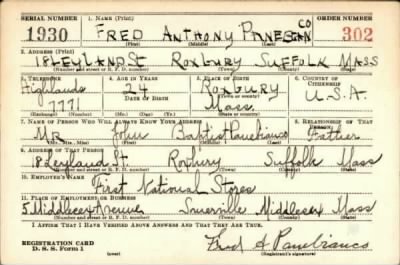 SERIAL NUMBER 1. NAME (Print) ORDER NUMBER
1930 FRED ANTHONY PANEBIANCO 302
(First) (Middle) (Last)
2. ADDRESS (Print)
18 LEYLAND ST ROXBURY SUFFOLK MASS
(Number and street or R. F. D. number) (Town) (County) (State)
3. TELEPHONE 4. AGE IN YEARS 5. PLACE OF BIRTH 6. COUNTRY OF CITIZENSHIP
Highlands 24 Roxbury
DATE OF BIRTH (Town or county) U.S.A.
7771 Mass
7. NAME OF PERSON WHO WILL ALWAYS KNOW YOUR ADDRESS 8. RELATIONSHIP OF THAT PERSON
Mr John Baptist Panebianco Father
(Mr., Mrs., Miss) (First) (Middle) (Last)
9. ADDRESS OF THAT PERSON
18 Leyland St Roxbury Suffolk Mass
(Number and street or R. F. D. number) (Town) (County) (State)
10. EMPLOYER'S NAME
First National Stores
11. PLACE OF EMPLOYMENT OR BUSINESS
5 Middlesex Avenue Somerville Middlesex Mass
(Number and street or R. F. D. number) (Town) (County) (State)
I AFFIRM THAT I HAVE VERIFIED ABOVE ANSWERS AND THAT THEY ARE TRUE.
REGISTRATION CARD
D. S. S. Form 1 (over) Fred A Panebianco
(Registrant's signature)